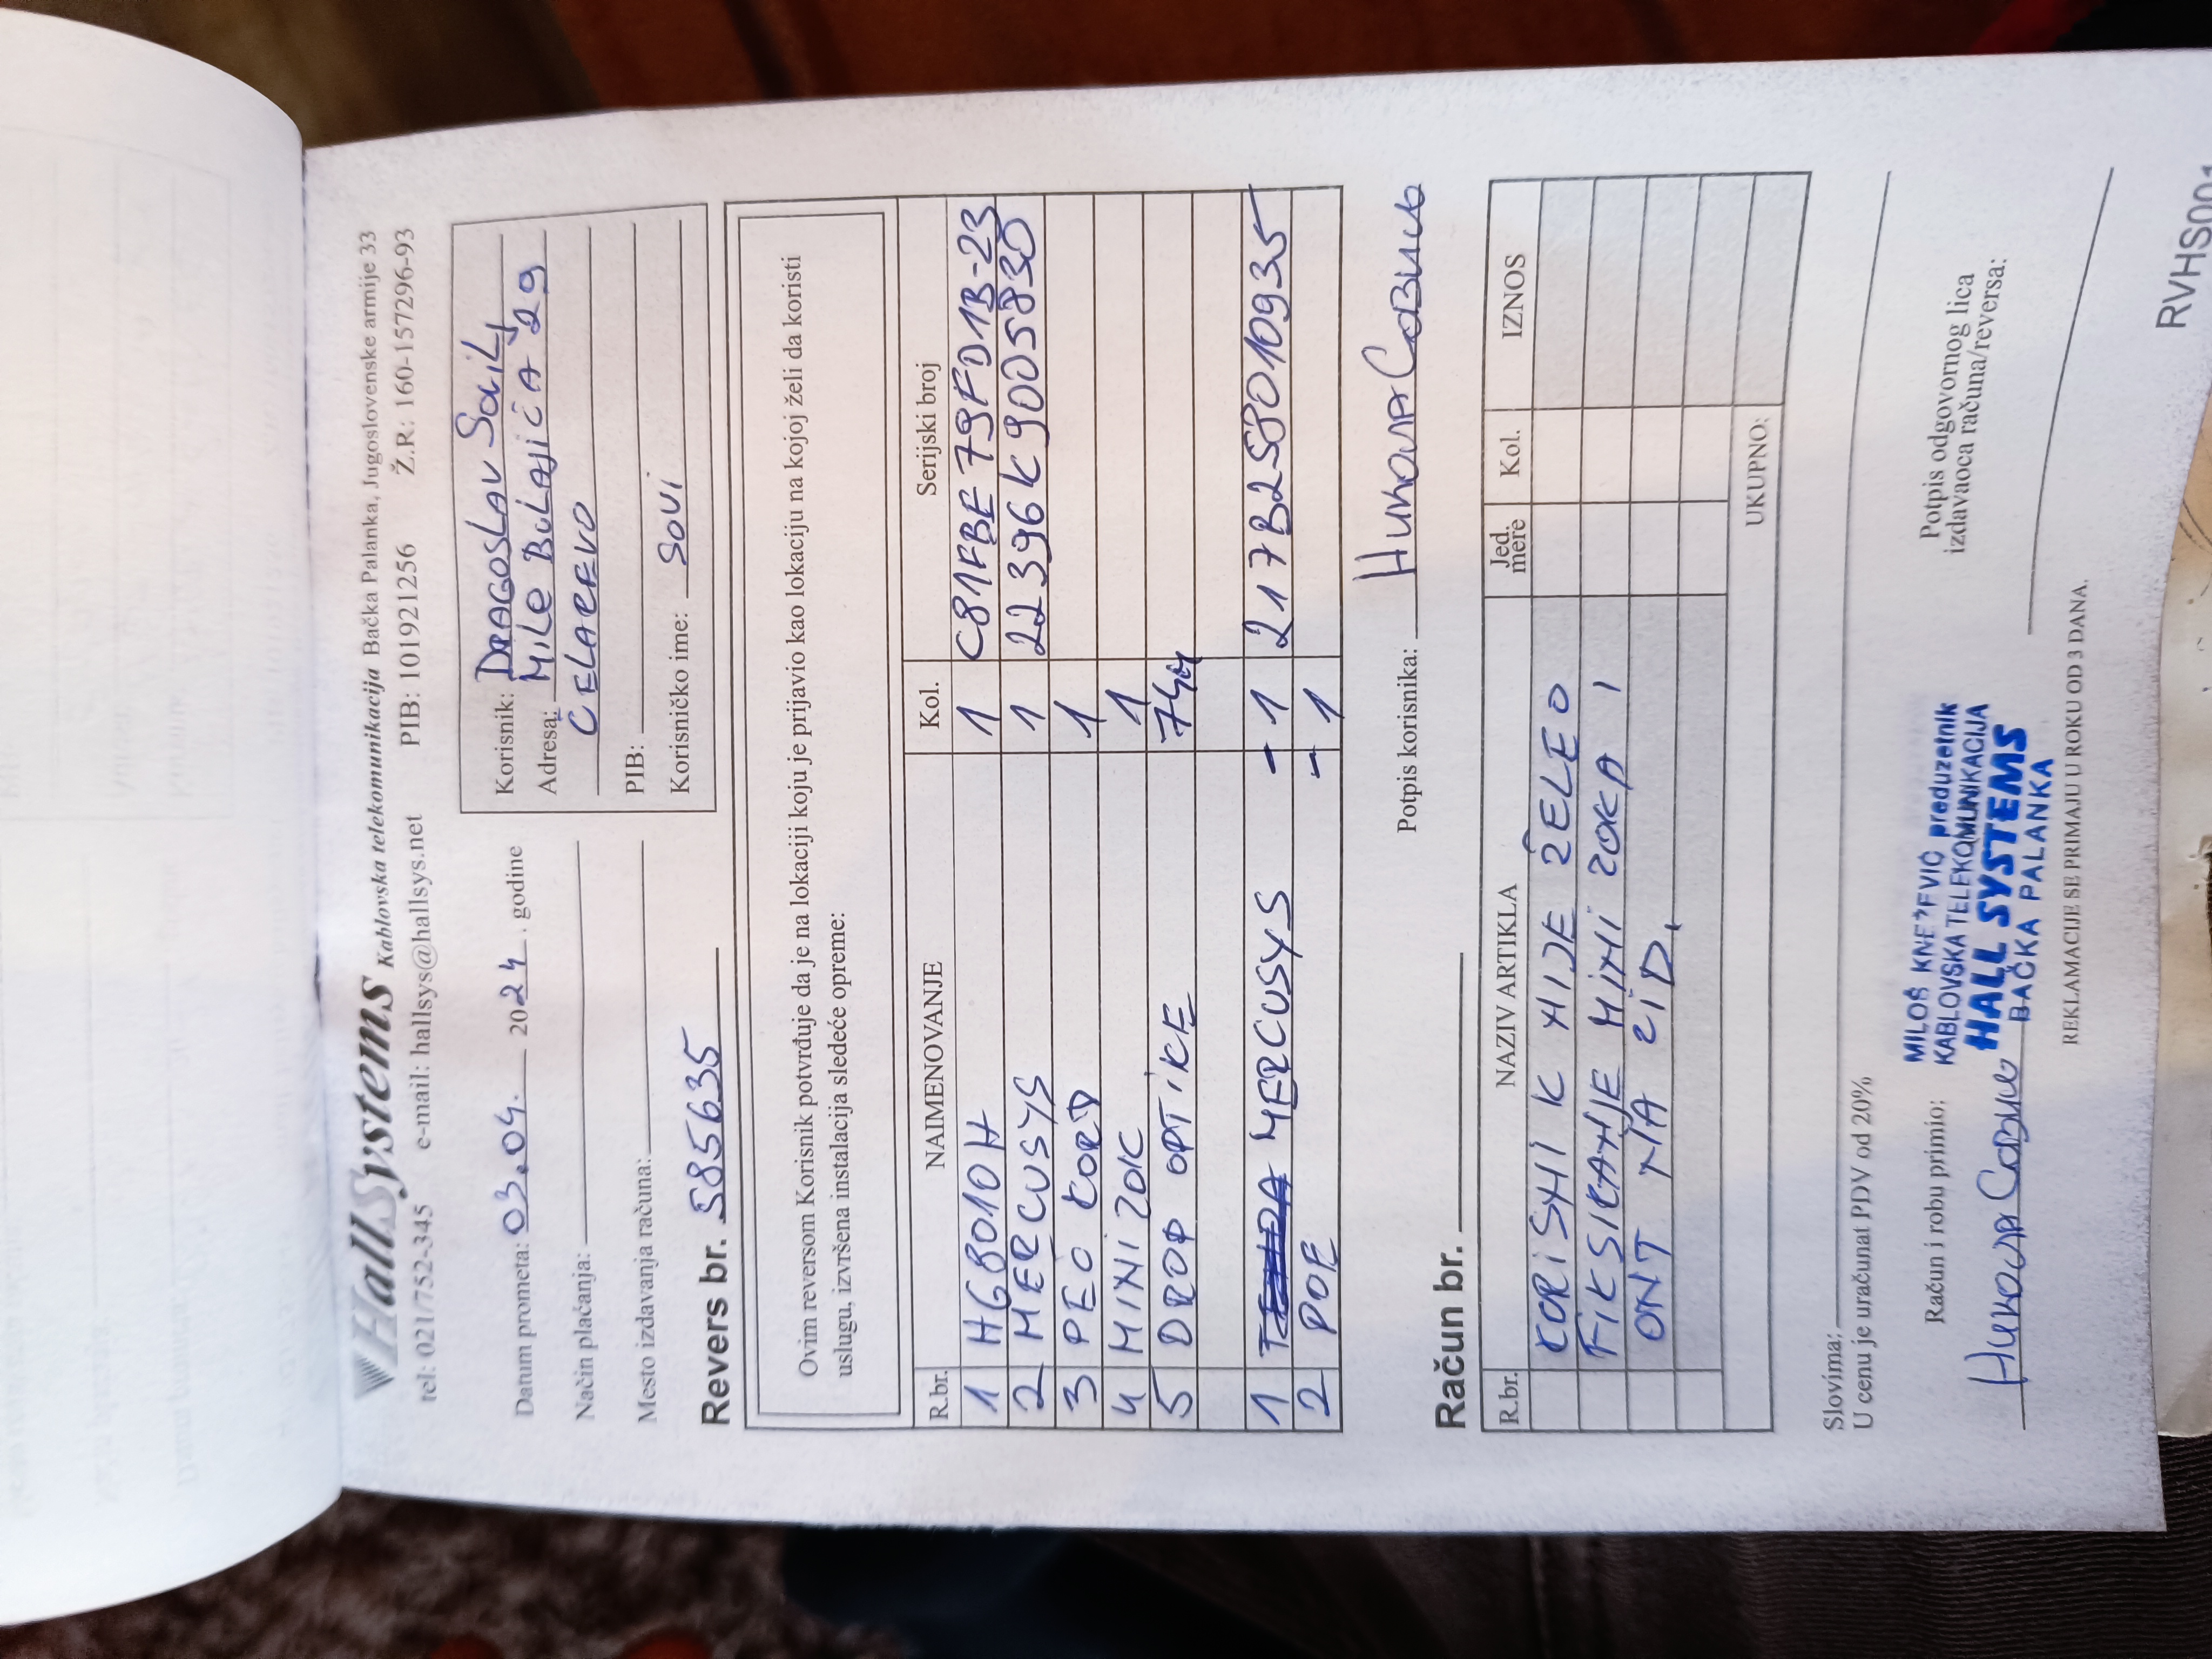 HallSystems Kablovska telekomunikacija Bačka Palanka, Jugoslovenske armije 33
tel: 021/752-345 e-mail: hallsys@hallsys.net PIB: 101921256 Ž.R: 160-157296-93
Datum prometa: 03.04. 2024. godine
Način plaćanja:
Mesto izdavanja računa:
Korisnik: DRAGOSLAV
Adresa: MILE BULAJIĆA 29
ČELAREVO
PIB:
Korisničko ime: SOVI
Revers br. 585635
Ovim reversom Korisnik potvrđuje da je na lokaciji koju je prijavio kao lokaciju na kojoj želi da koristi
uslugu, izvršena instalacija sledeće opreme:
R.br. NAIMENOVANJE Kol. Serijski broj
1 HG8010H 1 C81FBE79FD1B-23
2 MERCUSYS 1 22396K9005830
3 PEČ KORD 1
4 MINI ZOK 1
5 DROP OPTIKE 74m
1 MERCUSYS -1 217B258010935
2 POE -1
Potpis korisnika: Никола Савић
Račun br.
R.br. NAZIV ARTIKLA Jed. mere Kol. IZNOS
KORISNIK NIJE ŽELEO
FIKSIRANJE MINI ZOKA I
ONT NA ZID.
UKUPNO:
Slovima:
U cenu je uračunat PDV od 20%
Račun i robu primio:
Никола Савић
MILOŠ KNEŽEVIĆ preduzetnik
KABLOVSKA TELEKOMUNIKACIJA
HALL SYSTEMS
BAČKA PALANKA
Potpis odgovornog lica
izdavaoca računa/reversa:
REKLAMACIJE SE PRIMAJU U ROKU OD 3 DANA.